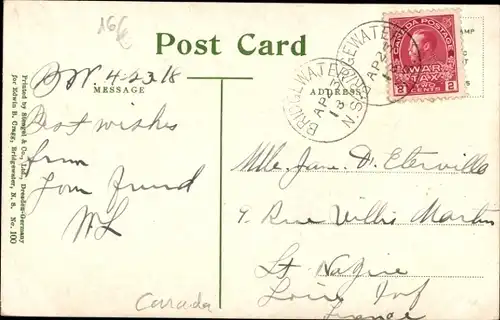 A6/c
Post Card
MESSAGE
ADDRESS
BRIDGEWATER N.S.
AP 23
18
CANADA POSTAGE
WAR
TAX
2 CENTS 2
BW 4-23-18
Best wishes
from
Your friend
WL
Mlle. Jane. D. Eterville
9 Rue Villis Martin
St Nazire
Loire Inf
France
Canada
Printed by Stengel & Co., Ltd., Dresden-Germany
for Edwin B. Cragg, Bridgewater, N. S. No. 100